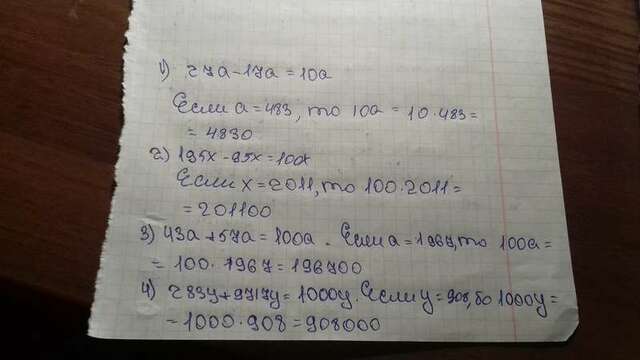 1) 27a - 17a = 10a
Если a = 483, то 10a = 10 · 483 =
= 4830
2) 195x - 95x = 100x
Если x = 2011, то 100 · 2011 =
= 201100
3) 43a + 57a = 100a. Если a = 1967, то 100a =
= 100 · 1967 = 196700
4) 283y + 717y = 1000y. Если y = 908, то 1000y =
= 1000 · 908 = 908000